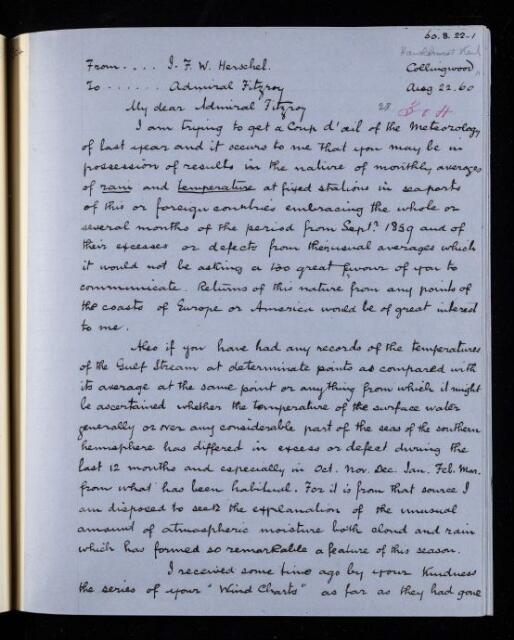 60.8.22-1
Hawkhurst Kent
From.... J. F. W. Herschel. Collingwood
To ...... Admiral Fitzroy Aug 22.60
My dear Admiral Fitzroy
I am trying to get a Coup d'œil of the Meteorology
of last year and it occurs to me that you may be in
possession of results in the nature of monthly averages
of rain and temperature at fixed stations in seaports
of this or foreign countries embracing the whole or
several months of the period from Sept. 1859 and of
their excesses or defects from their usual averages which
it would not be asking a too great favour of you to
communicate. Returns of this nature from any points of
the coasts of Europe or America would be of great interest
to me.
Also if you have had any records of the temperatures
of the Gulf Stream at determinate points as compared with
its average at the same point or anything from which it might
be ascertained whether the temperature of the surface water
generally or over any considerable part of the seas of the southern
hemisphere has differed in excess or defect during the
last 12 months and especially in Oct. Nov. Dec. Jan. Feb. Mar.
from what has been habitual. For it is from that source I
am disposed to seek the explanation of the unusual
amount of atmospheric moisture both cloud and rain
which has formed so remarkable a feature of this season.
I received some time ago by your kindness
the series of your "Wind Charts" as far as they had gone